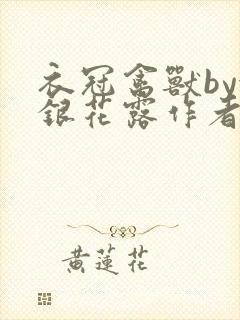 衣冠禽獸by
銀花露作者
黄蓮花